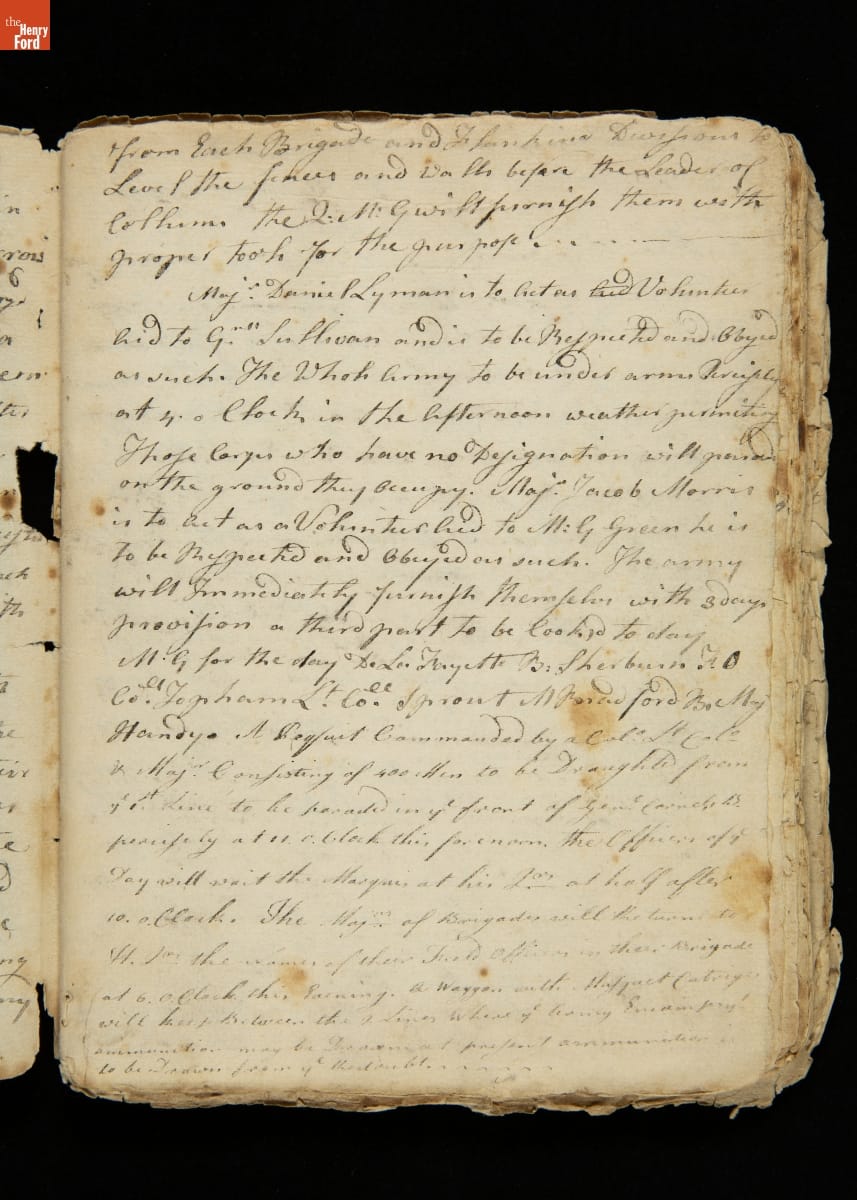 the
Henry
Ford
from Each Brigade and Flanking Divisions to
Level the fences and Walls before the Leader of
Collums the Q: M: G will furnish them with
proper tools for the purpose
Maj.r Daniel Lyman is to act as Aid Volunteer
Aid to G.nll Sullivan and is to be Respected and Obeyed
as such. The Whole Army to be under arms Precisely
at 4. o Clock in the Afternoon weather permiting
Those Corps who have no Designation will parade
on the ground they Occupy. Maj.r Jacob Morris
is to act as a Volunteer Aid to M: G Green he is
to be Respected and Obeyed as such. The army
will Immediately furnish themselves with 3 days
provision a third part to be Cooked to day
M: G for the day De La Fayette B: Sherburn F. O
Co.ll Topham Lt. Co.ll Sprout M Bradford B. Maj
Handy. A Pequit Commanded by a Col.o Lt Col.o
& Maj.r Consisting of 400 Men to be Draughted from
ye 1st Line to be paraded in ye front of Genl Cornels Br
percisely at 11. o.Clock this forenoon. the Officers of ye
Day will wait the Marquis at his Qrs at half after
10. o.Clock. The Majrs of Brigades will Return to
H. Qrs the names of their Field Officers in their Brigade
at 6. o.Clock this Evening. A Waggon with Musquet Catreges
will keep Between the 2 Lines Where ye Army Encamp ye
ammunition may be Drawn at present ammunition is
to be Drawn from ye Redoubt